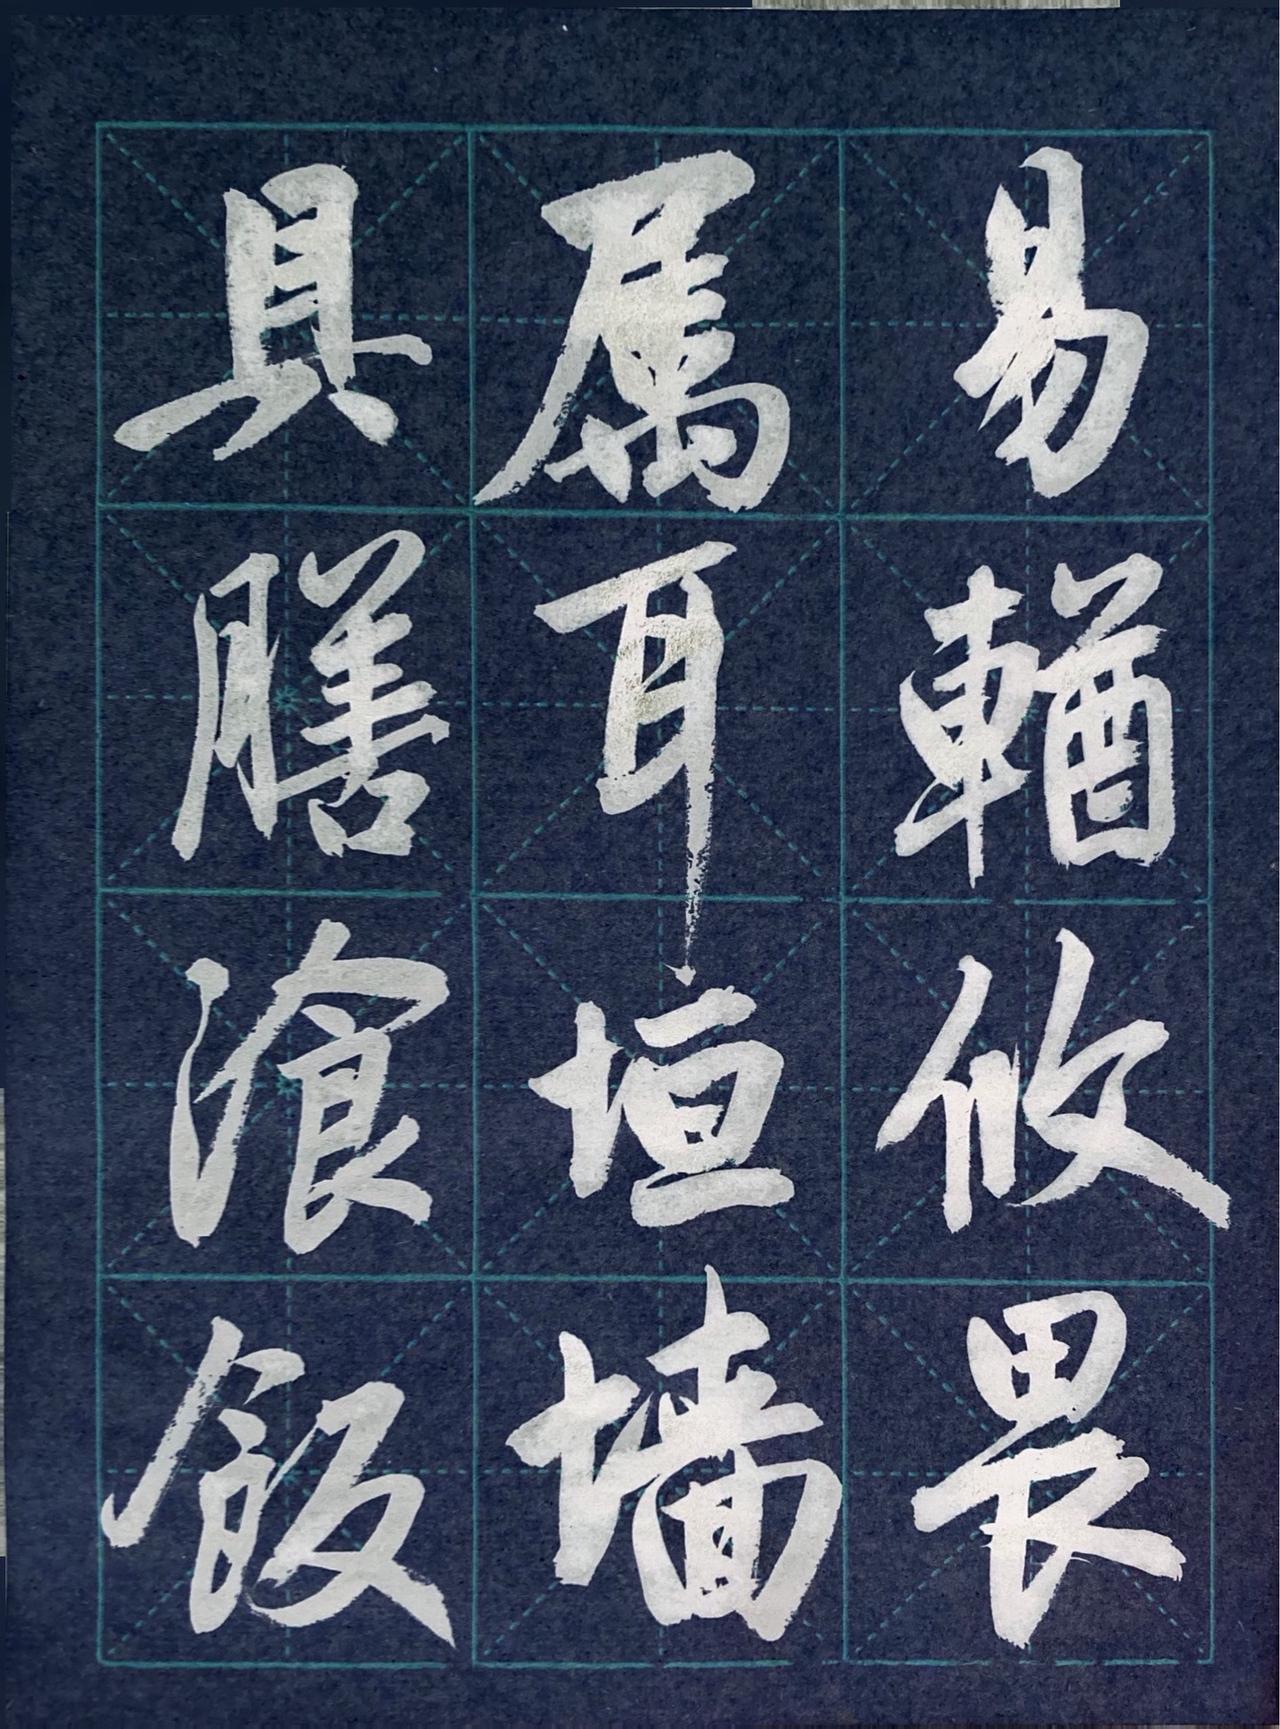 易輶攸畏
属耳垣墙
具膳飡飯